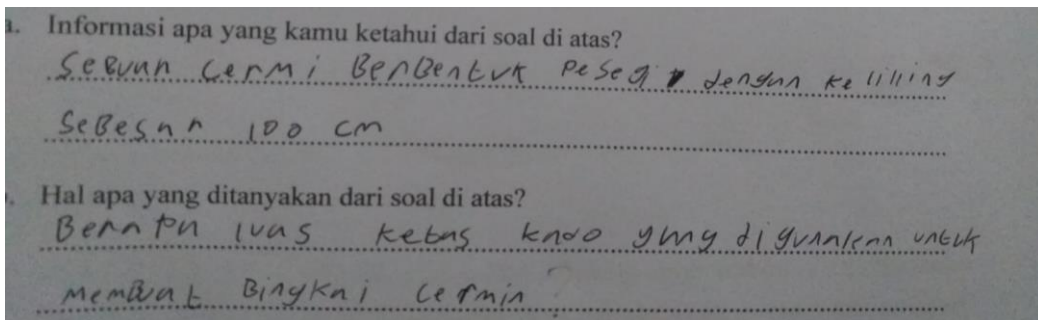 a. Informasi apa yang kamu ketahui dari soal di atas?
Sebuah cermi Berbentuk Pesegi dengan keliling
Sebesar 100 cm
. Hal apa yang ditanyakan dari soal di atas?
Berapa luas kertas kado yang digunakan untuk
membuat Bingkai cermin ?